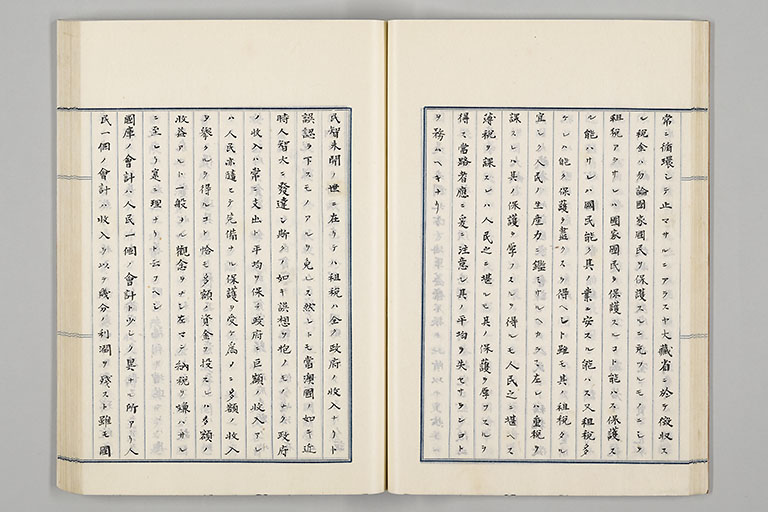 常ニ循環シテ止マサルニアラスヤ大藏省ニ於テ徴収ス
ル税金ハ勿論國家國民ヲ保護スルニ充ツルモノニシテ
租税アラサレハ國家國民ヲ保護スルコト能ハス保護ス
ル能ハサレハ國民能ク其ノ業ニ安スル能ハス又租税多
ケレハ能ク保護ヲ盡クスヲ得ヘシト雖モ其ノ租税タル
宜シク人民ノ生産力ニ鑑ミサルヘカラス左レハ重税ヲ
課スレハ其ノ保護ヲ厚フスルヲ得レモ人民之ニ堪ヘス
薄税ヲ課スレハ人民之ニ堪レモ其ノ保護ヲ厚フスルヲ
得ス當路者應ニ爰ニ注意シ其ノ平均ヲ失セサランコト
ヲ務ムヘキナリ
民智未開ノ世ニ在リテハ租税ハ全ク政府ノ收入ナリト
誤認ヲ下スモノアルヲ免レス然レトモ當澳國ノ如キ近
時人智大ニ發達シ斯クノ如キ誤想ヲ抱クモノナク政府
ノ收入ハ常ニ支出ト平均ヲ保チ政府ニ巨額ノ收入アレ
ハ人民亦隨テ完備ナル保護ヲ受ケ為メニ多額ノ收入
ヲ擧クルヲ得ルコト恰モ多額ノ資金ヲ投スレハ多額ノ
收益アルト一般ノ觀念ヲナシ左マテ納税ヲ嫌ハサル
ニ至レリ寔ニ理ナリト云フヘシ
國庫ノ會計ハ人民一個ノ會計ト少シク異ナル所アリ人
民一個ノ會計ハ收入ヲ以テ幾分ノ利潤ヲ殘スト雖モ國